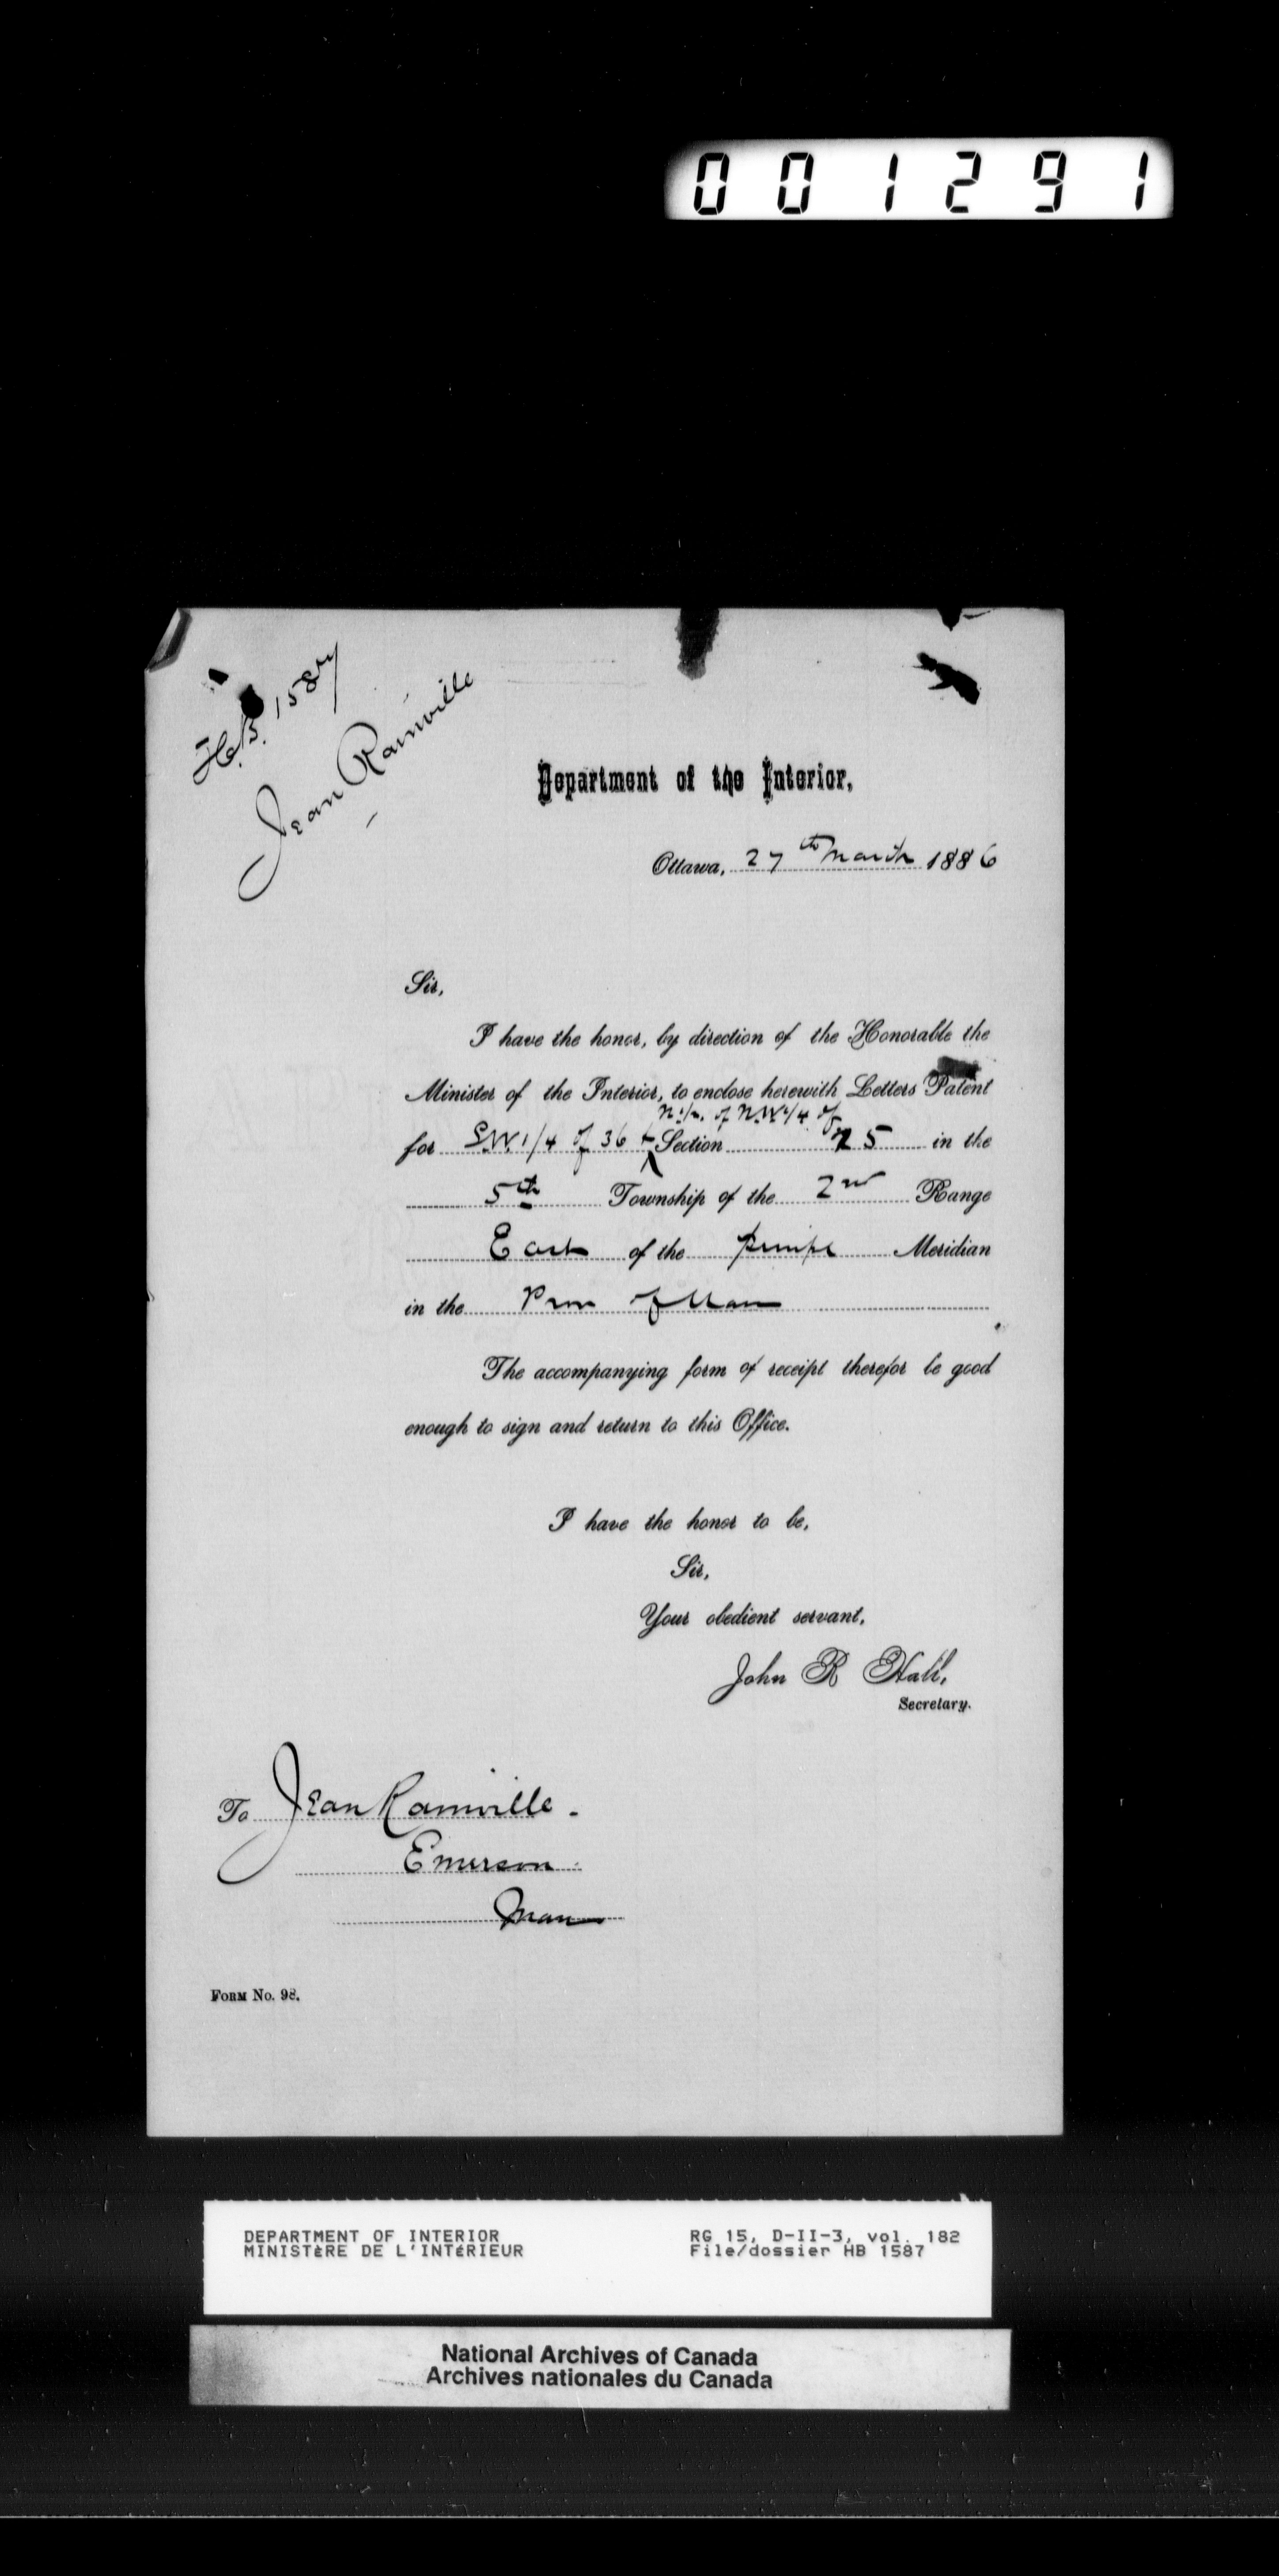 001291
H.B. 1587
Jean Rainville
Department of the Interior,
Ottawa, 27th March 1886
Sir,
I have the honor, by direction of the Honorable the
Minister of the Interior, to enclose herewith Letters Patent
N.1/2. of N.W.1/4 of
for S.W.1/4 of 36 & Section 25 in the
5th Township of the 2nd Range
East of the Principal Meridian
in the Prov of Man
The accompanying form of receipt therefor be good
enough to sign and return to this Office.
I have the honor to be,
Sir,
Your obedient servant,
John R Hall,
Secretary.
To Jean Rainville.
Emerson
Man
FORM No. 98.
DEPARTMENT OF INTERIOR RG 15, D-II-3, vol. 182
MINISTÈRE DE L'INTÉRIEUR File/dossier HB 1587
National Archives of Canada
Archives nationales du Canada